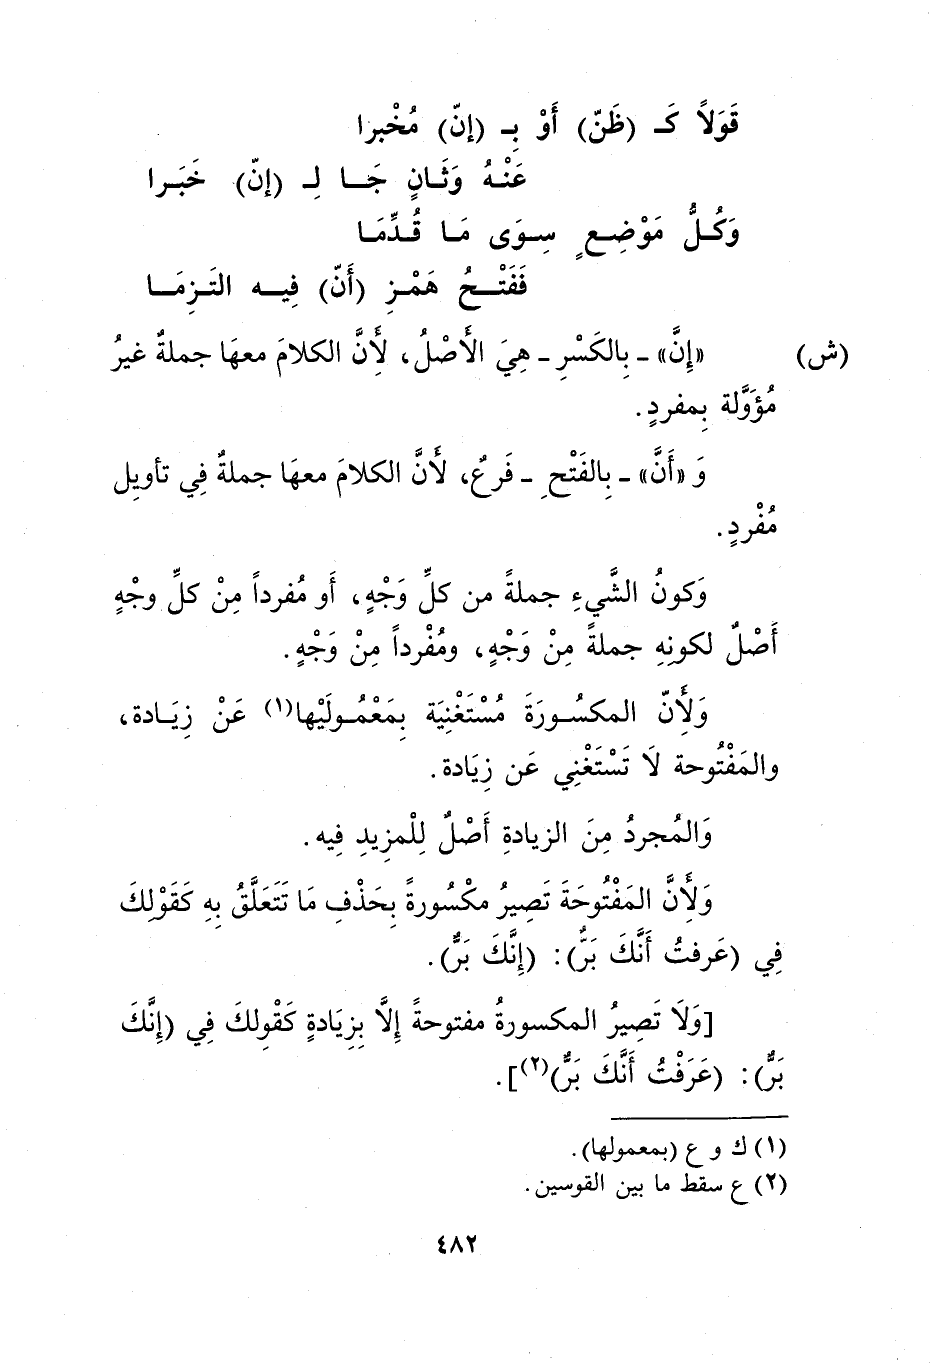 قَوَلاً كَـ (ظَنّ) أَوْ بِـ (إنّ) مُخْبرا
عَنْـهُ وَثَـانٍ جَـــا لِـ (إنّ) خَبَـرا
وَكُـلُّ مَوْضِـعٍ سِـوَى مَـا قُـدِّمَـا
فَفَتْـــحُ هَمْـزِ (أَنّ) فِيـــه التَـزِمَـا
(ش) «إِنَّ» ـ بِالكَسْرِ ـ هِيَ الأَصْلُ، لِأَنَّ الكلامَ معهَا جملةٌ غيرُ
مُؤَوَّلة بِمفردٍ.
وَ «أَنَّ» ـ بِالفَتْحِ ـ فَرعٌ، لأَنَّ الكلامَ معهَا جملةٌ فِي تأويل
مُفْردٍ.
وَكونُ الشَّيءِ جملةً من كلِّ وَجْهٍ، أو مُفرداً مِنْ كلِّ وجْهٍ
أَصْلٌ لكونِهِ جملةً مِنْ وَجْهٍ، ومُفْرداً مِنْ وَجْهٍ.
وَلِأَنّ المكسُـورَةَ مُسْتَغْنِيَة بِمَعْمُـولَيْها(١) عَنْ زِيَـادة،
والمَفْتُوحة لَا تَسْتَغْنِي عَن زِيَادة.
وَالمُجردُ مِنَ الزيادةِ أَصْلٌ لِلْمزِيدِ فِيه.
وَلِأَنَّ المَفْتُوحَةَ تَصِيرُ مكْسُورةً بِحَذْفِ مَا تَتَعَلَّقُ بِهِ كَقَوْلِكَ
فِي (عَرفتُ أَنَّكَ بَرٌّ): (إِنَّكَ بَرٌّ).
[وَلَا تَصِيرُ المكسورةُ مفتوحةً إِلَّا بِزِيَادةٍ كَقْولِكَ فِي (إِنَّكَ
بَرٌّ): (عَرَفْتُ أَنَّكَ بَرٌّ)(٢)].
(١) ك و ع (بمعمولها).
(٢) ع سقط ما بين القوسين.
٤٨٢